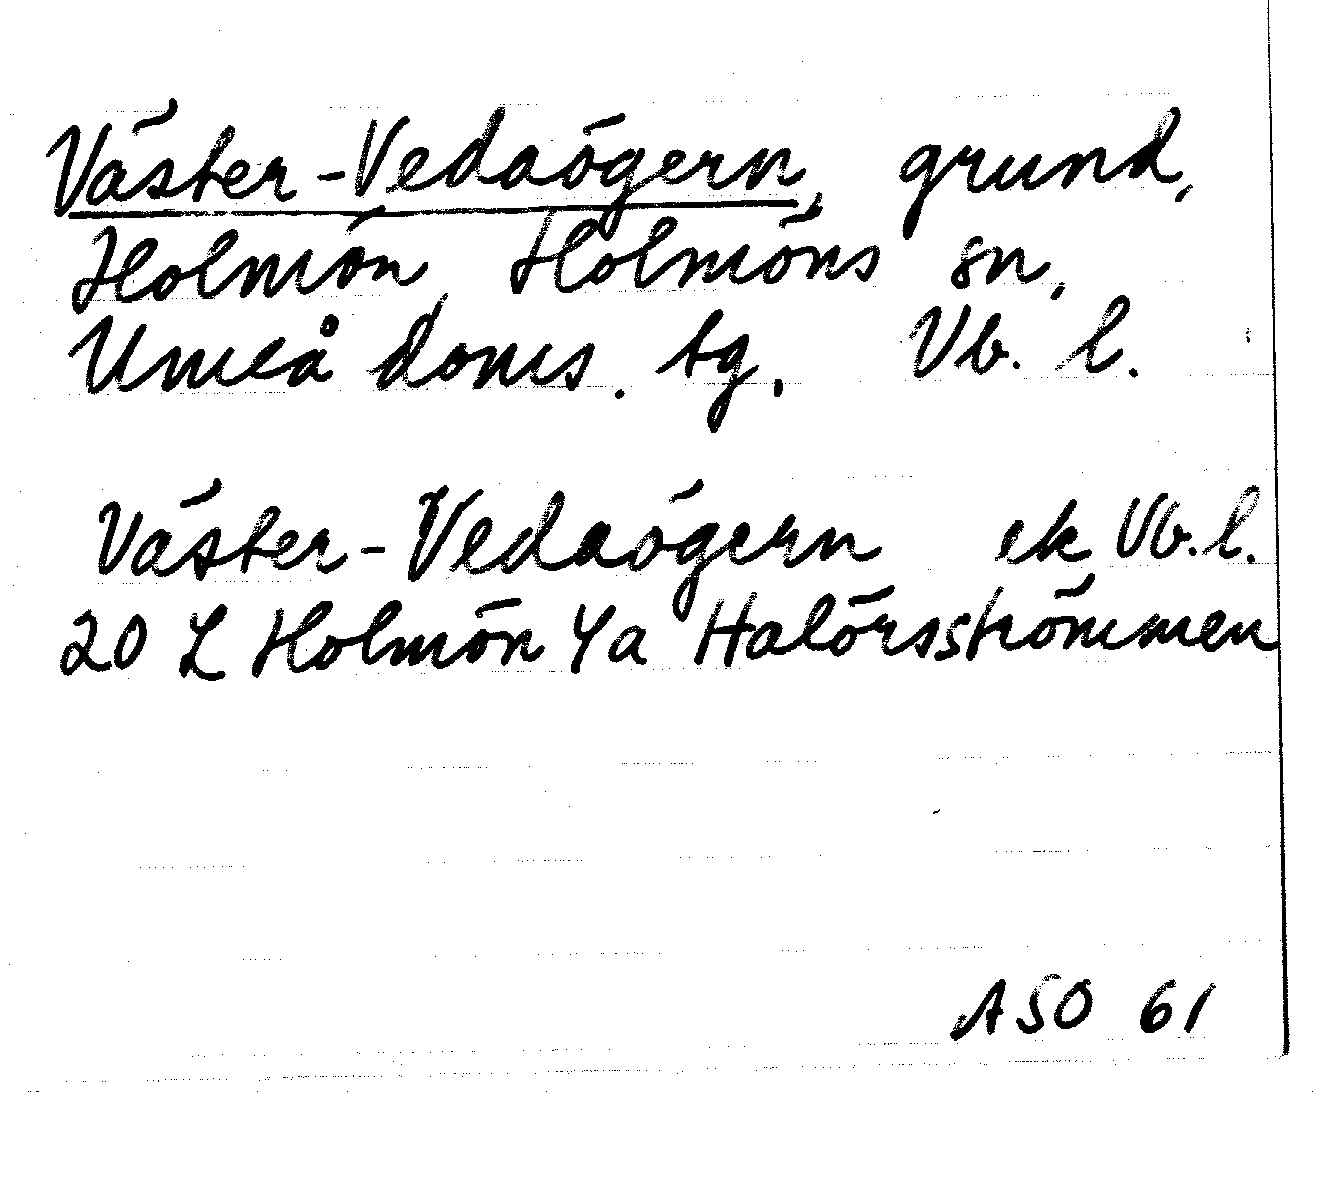 Väster-Vedaögern, grund,
Holmön, Holmöns sn,
Umeå doms. tg, Vb. l.
Väster-Vedaögern ek Vb.l.
20 L Holmön Ya Halörsströmmen
ASO 61